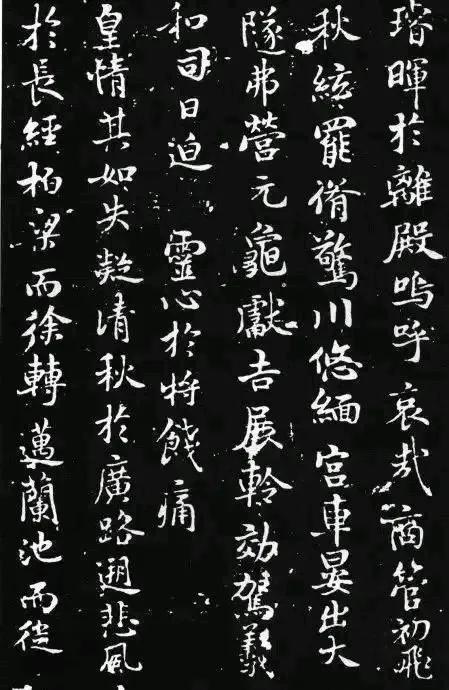 璿暉於離殿嗚呼哀哉商管初飛
秋絃罷脩驚川悠緬宮車晏出大
隧弗營元龜獻吉展軨効駕羲
和司日迫 靈心於將餞痛
皇情其如失凝清秋於廣路遡悲風
於長經柏梁而徐轉邁蘭池而從